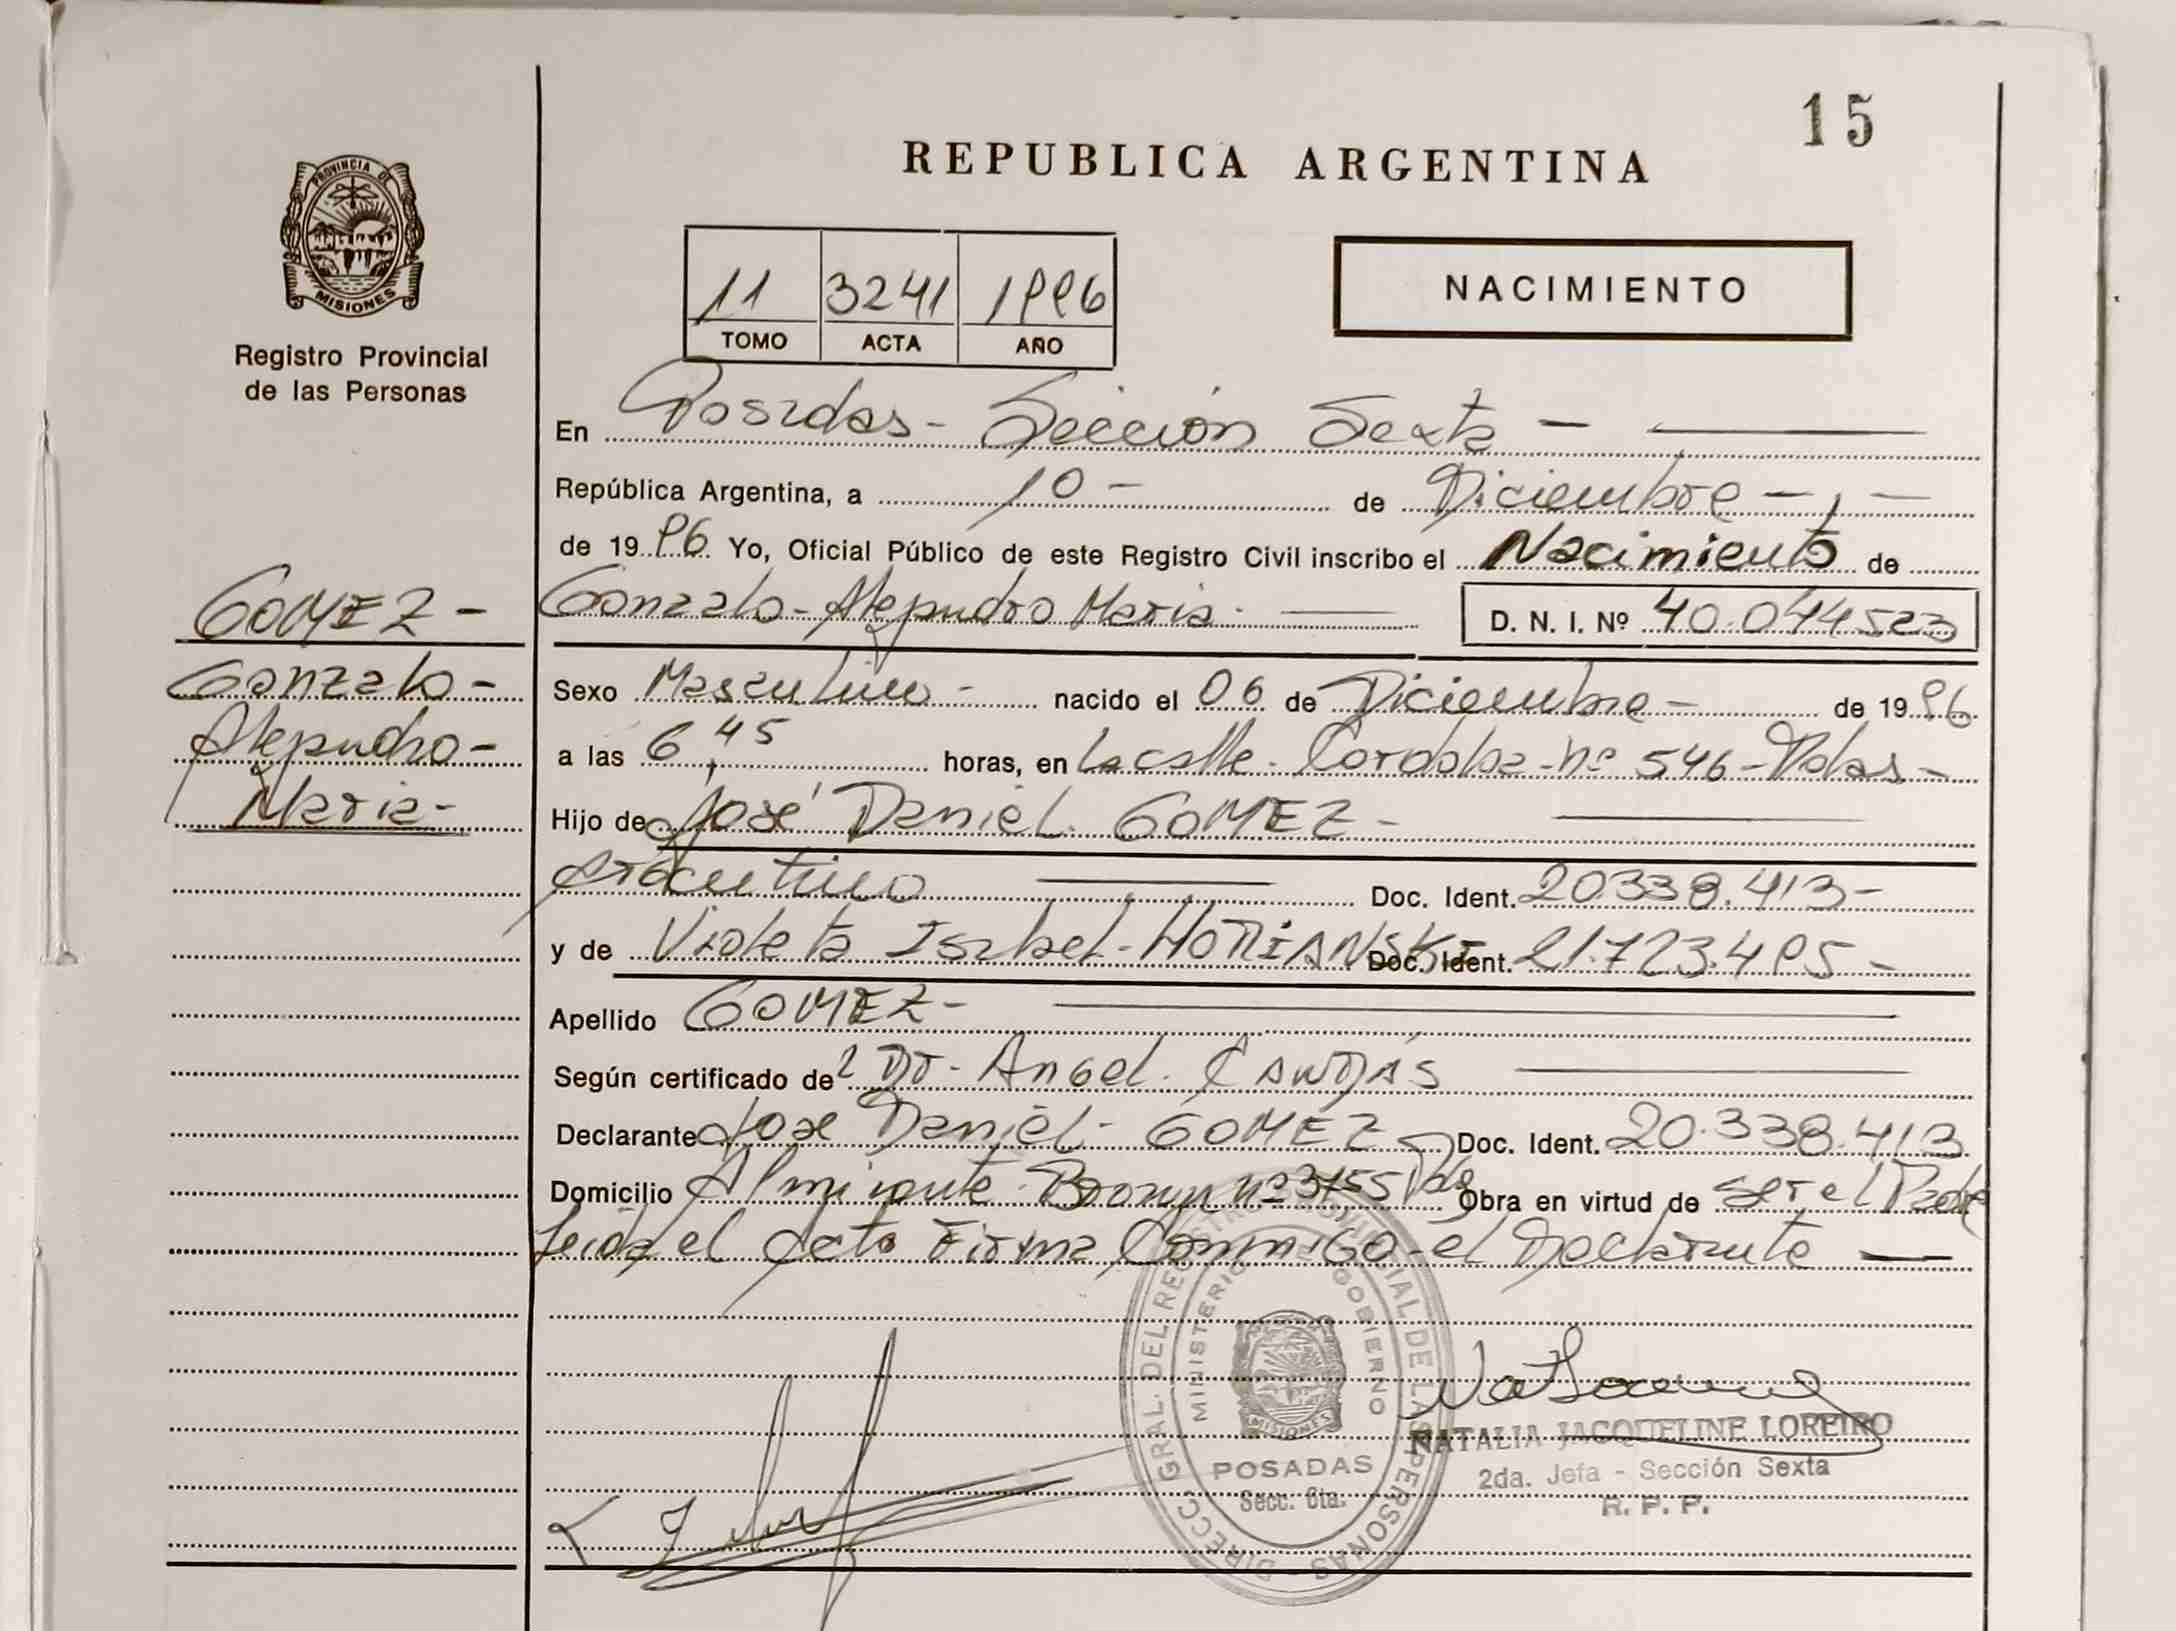 15
REPUBLICA ARGENTINA
PROVINCIA DE
MISIONES
Registro Provincial
de las Personas
11 3241 1996
TOMO ACTA AÑO
NACIMIENTO
En Posadas - Sección Sexta -
República Argentina, a 10 - de Diciembre -
de 1996 Yo, Oficial Público de este Registro Civil inscribo el Nacimiento de
Gonzalo - Alejandro Maria - D. N. I. Nº 40.044523
GOMEZ -
Gonzalo -
Alejandro -
Maria -
Sexo Masculino - nacido el 06 de Diciembre - de 1996
a las 6,45 horas, en La calle - Cordoba - nº 546 - Pdas -
Hijo de José Daniel GOMEZ -
Argentino Doc. Ident. 20.338.413 -
y de Violeta Isabel - HORIANSKI Doc. Ident. 21.723.495 -
Apellido GOMEZ -
Según certificado de Dr. Angel
Declarante Jose Daniel - GOMEZ Doc. Ident. 20.338.413
Domicilio Almirante Brown nº 3155 Pdas Obra en virtud de ser el Padre
Leida el acta Firma Conmigo - el Declarante
DIRECC. GRAL. DEL REGISTRO PROVINCIAL DE LAS PERSONAS
MINISTERIO DE GOBIERNO
MISIONES
POSADAS
Secc. 6ta.
NATALIA JACQUELINE LOREIRO
2da. Jefa - Sección Sexta
R. P. P.